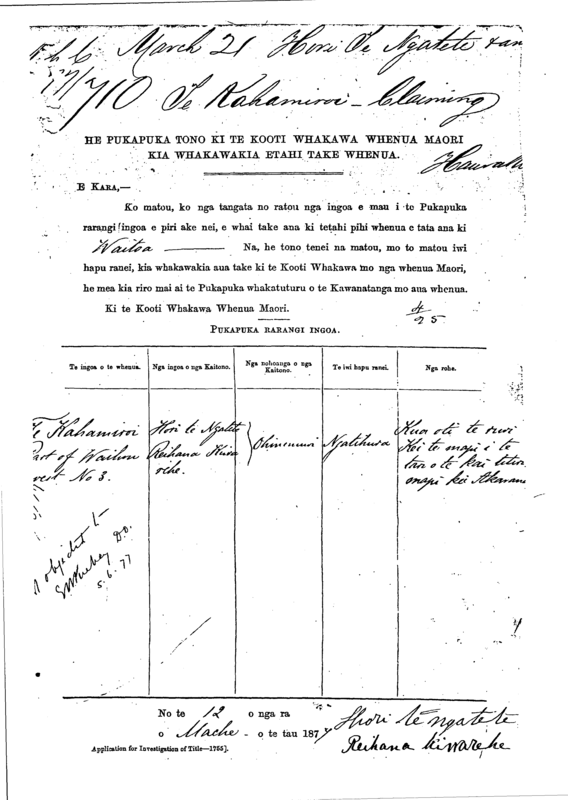 March 21 Hori Te Ngatete & an
710 Te Kahamiroi - Claiming
HE PUKAPUKA TONO KI TE KOOTI WHAKAWA WHENUA MAORI
KIA WHAKAWAKIA ETAHI TAKE WHENUA.
E KARA,—
Ko matou, ko nga tangata no ratou nga ingoa e mau i te Pukapuka
rarangi ingoa e piri ake nei, e whai take ana ki tetahi pihi whenua e tata ana ki
Waitoa Na, he tono tenei na matou, mo to matou iwi
hapu ranei, kia whakawakia aua take ki te Kooti Whakawa mo nga whenua Maori,
he mea kia riro mai ai te Pukapuka whakatuturu o te Kawanatanga mo aua whenua.
Ki te Kooti Whakawa Whenua Maori.
4/25
PUKAPUKA RARANGI INGOA.
Te ingoa o te whenua.
Nga ingoa o nga Kaitono.
Nga nohoanga o nga Kaitono.
Te iwi hapu ranei.
Nga rohe.
Te Kahamiroi
Part of Waihou
West No 3.
Hori te Ngatete
Reihana Kiwa
rihe.
Ohinemuri
Ngatihura
Kua oti te ruri
Kei te mapi i te
tari o te kai ruri
mapi kei Akarana
5.6.77
No te 12 o nga ra
o Mache o te tau 187
Hori te ngatete
Reihana kiwarehe
Application for Investigation of Title—1755].